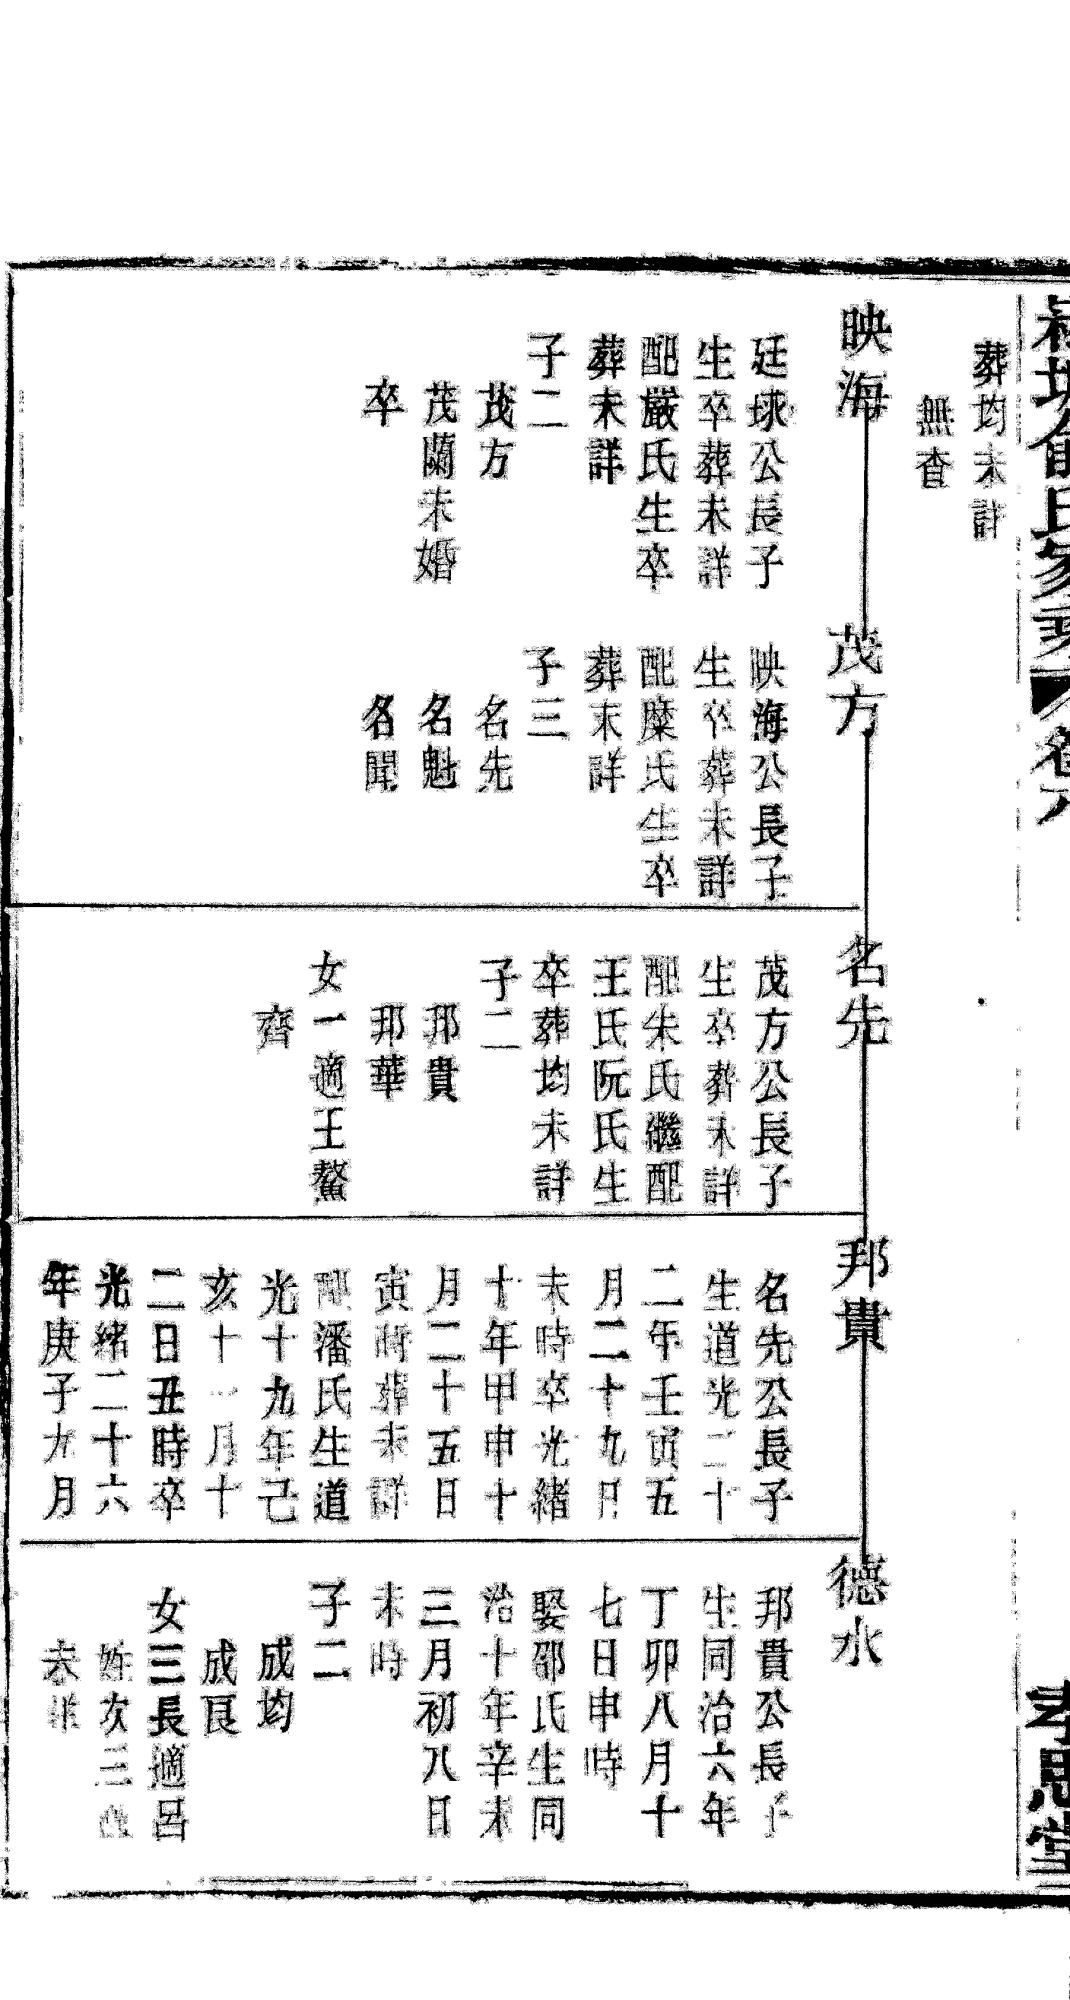 俞氏家乘 卷八
孝思堂
葬均未詳
無查
映海
廷球公長子
生卒葬未詳
配嚴氏生卒
葬未詳
子二
茂方
茂蘭未婚
卒
茂方
映海公長子
生卒葬未詳
配糜氏生卒
葬未詳
子三
名先
名魁
名聞
名先
茂方公長子
生卒葬未詳
配朱氏繼配
王氏阮氏生
卒葬均未詳
子二
邦貴
邦華
女一適王鰲
齊
邦貴
名先公長子
生道光二十
二年壬寅五
月二十九日
未時卒光緒
十年甲申十
月二十五日
寅時葬未詳
配潘氏生道
光十九年己
亥十一月十
二日丑時卒
光緒二十六
年庚子九月
德水
邦貴公長子
生同治六年
丁卯八月十
七日申時
娶邵氏生同
治十年辛未
三月初八日
未時
子二
成均
成良
女三長適呂
姓次三
未詳